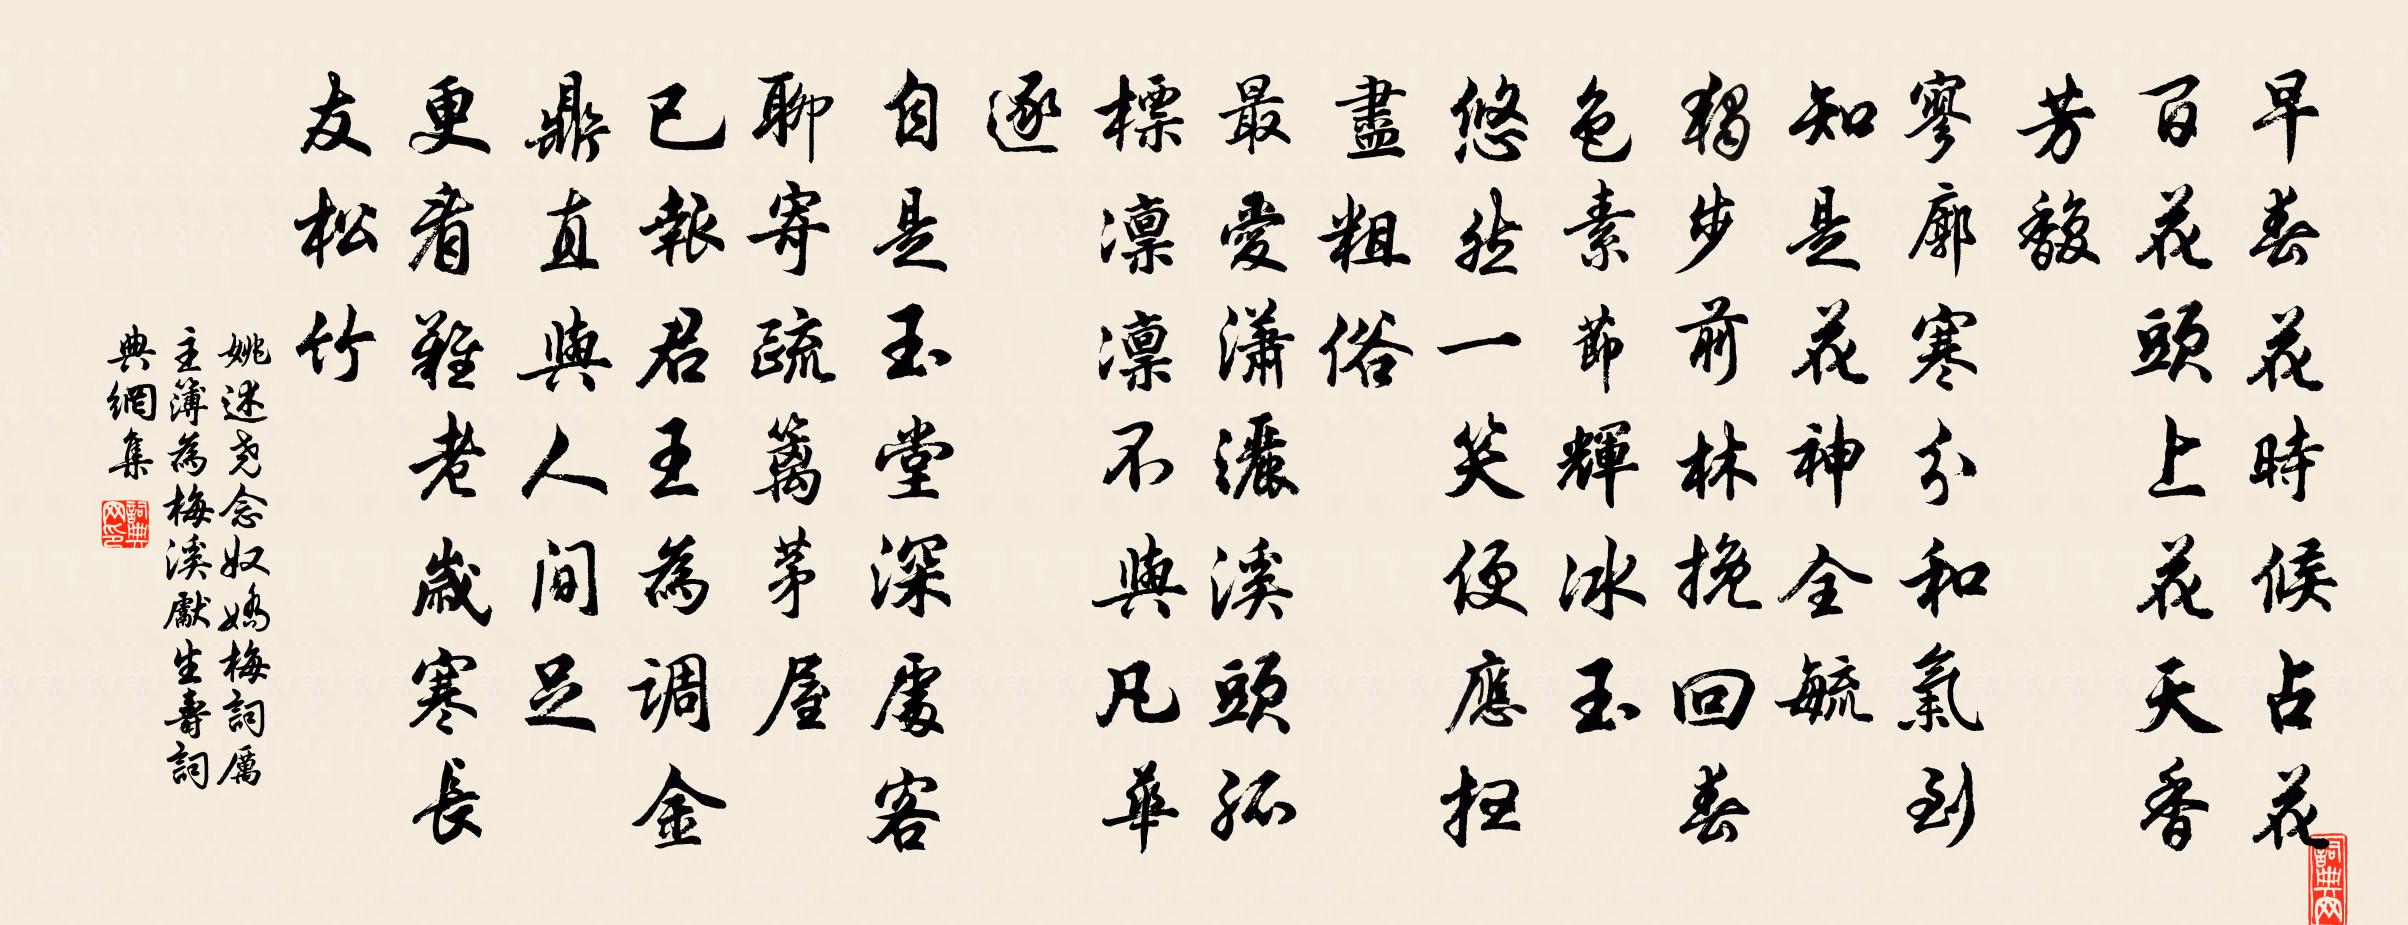 早春花時候占花
百花頭上花天香
芳馥
寥廓寒分和氣到
知是花神全毓
獨步前林挽回春
色素節輝冰玉
悠然一笑便應扭
盡粗俗
最愛瀟灑溪頭孤
標凛凛不與凡華
逐
自是玉堂深處客
聊寄疏籬茅屋
已報君王為調金
鼎直與人間足
更看難老歲寒長
友松竹
姚述堯念奴嬌梅詞厲
主簿為梅溪獻生壽詞
典網集
詞典网印
詞典网